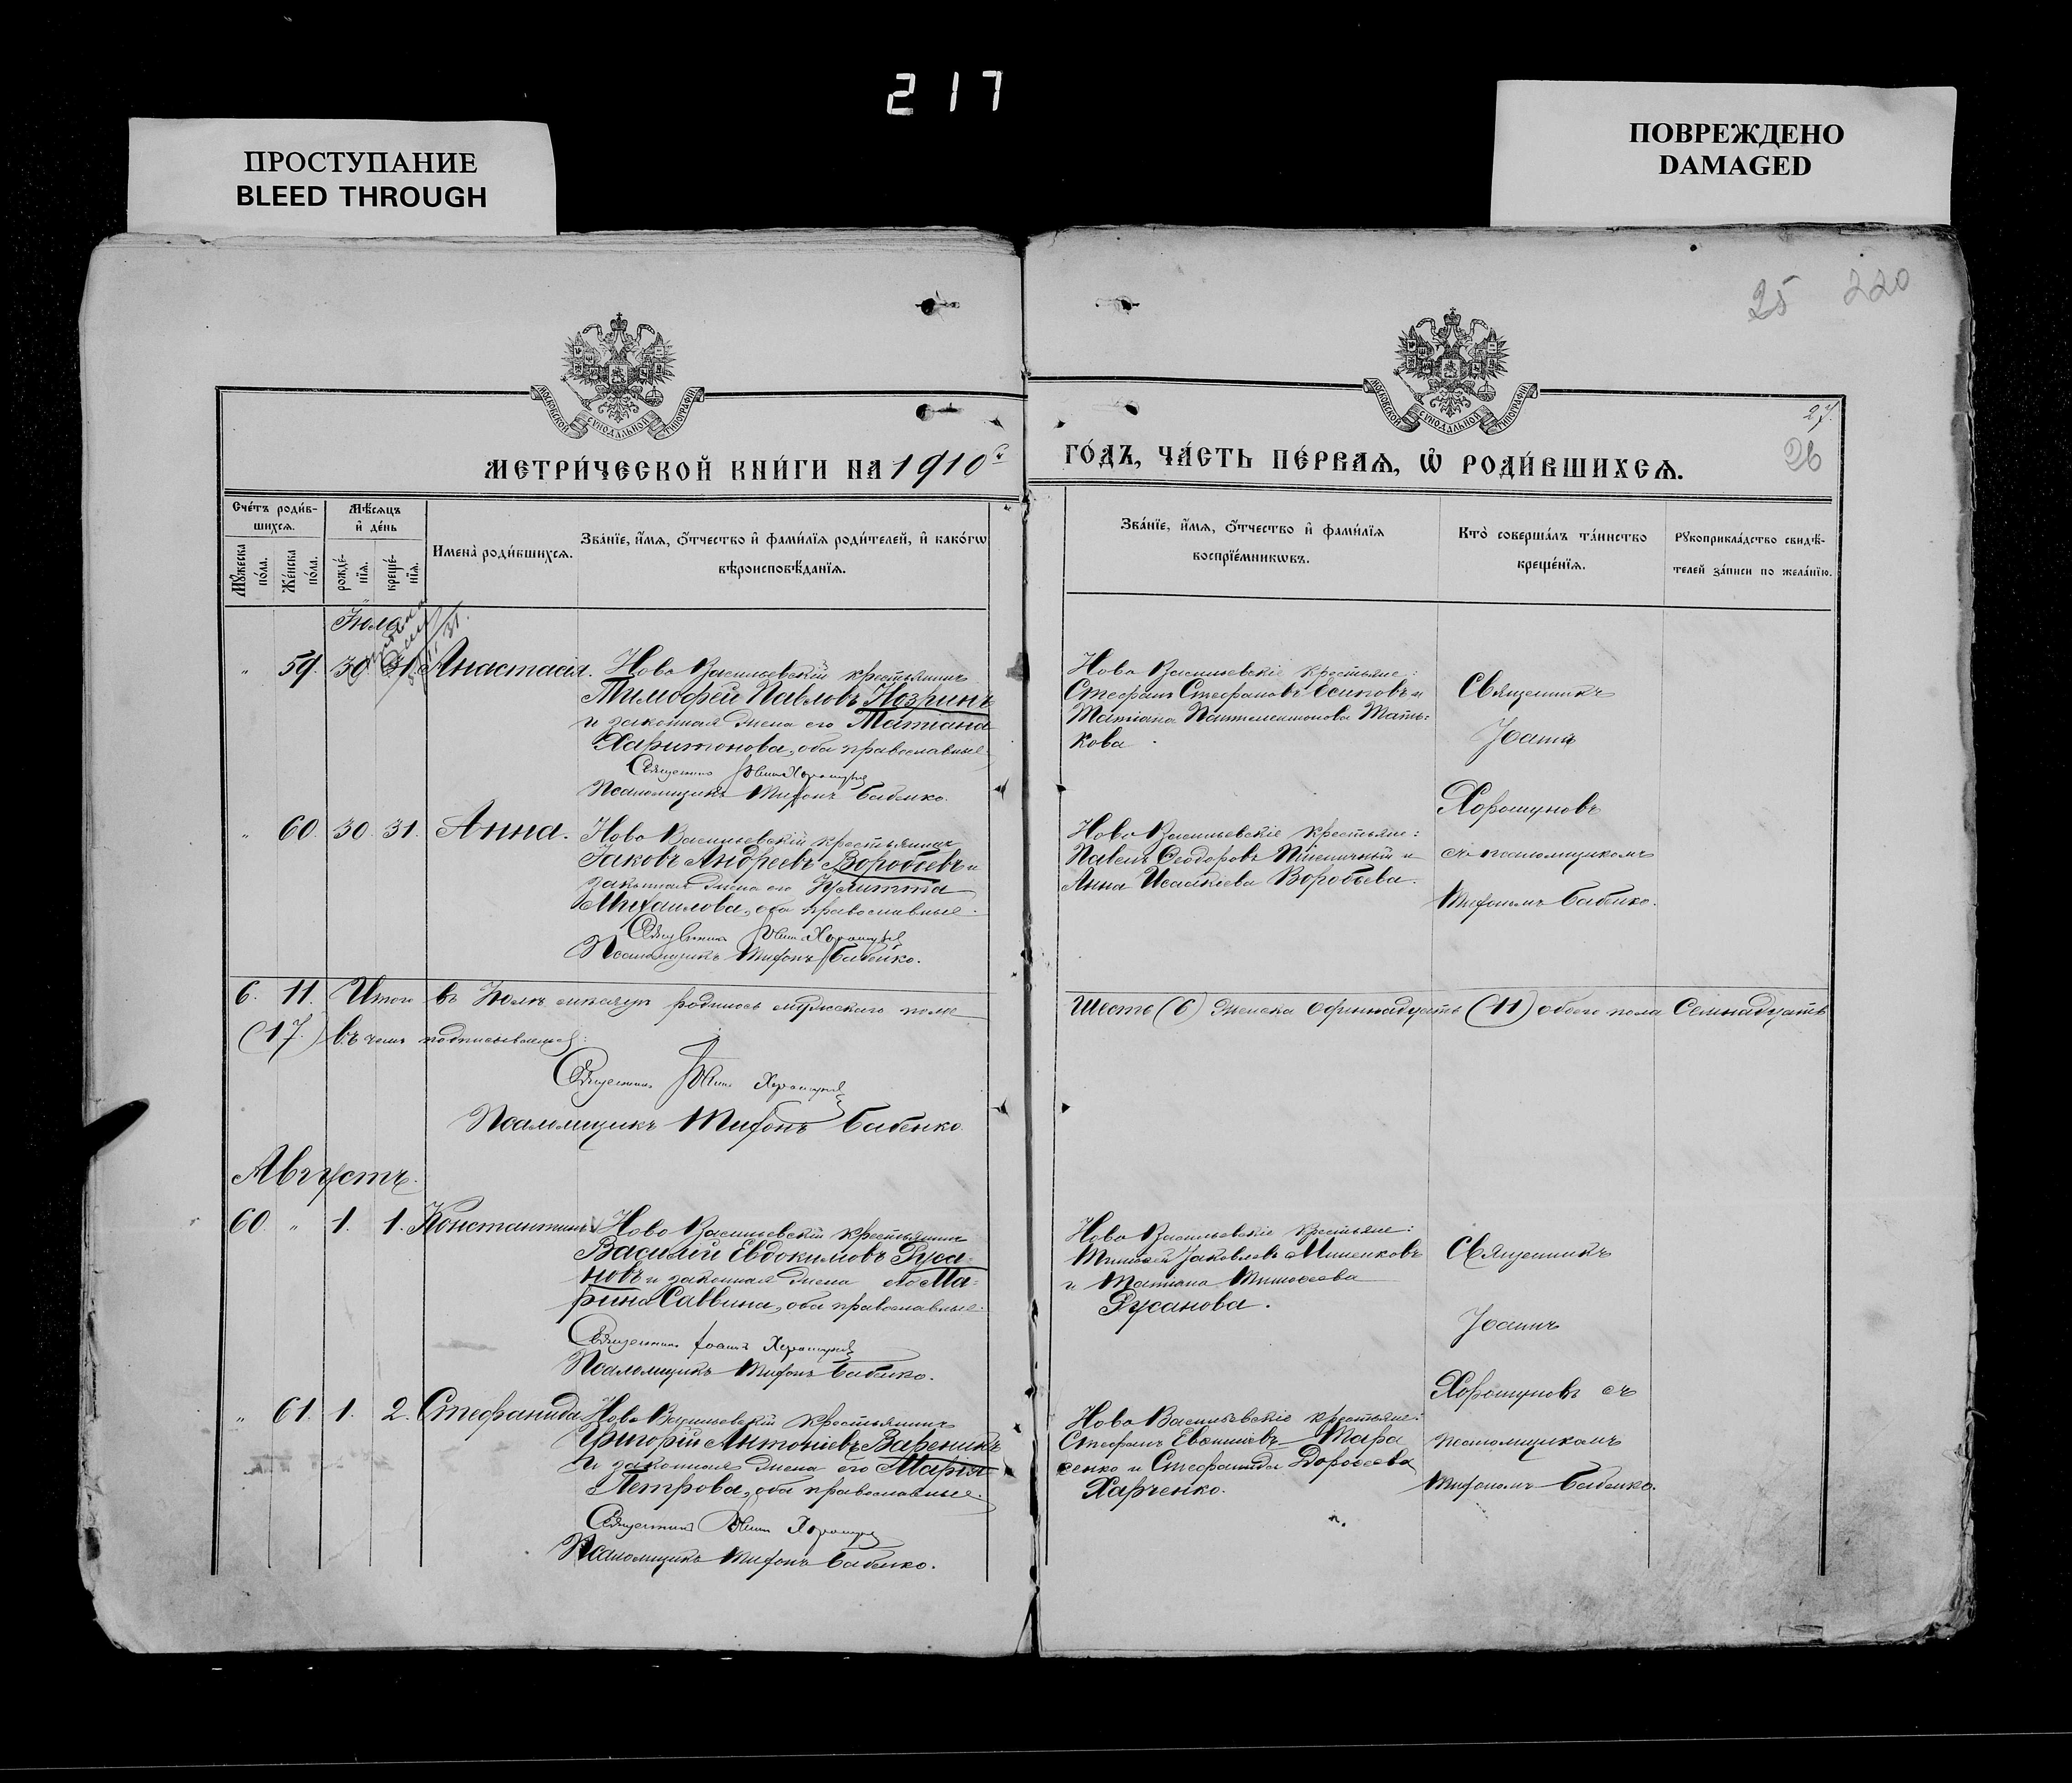 217
ПРОСТУПАНИЕ
BLEED THROUGH
ПОВРЕЖДЕНО
DAMAGED
25 220
27.
26
МОСКОВСКОЙ СѴНОДАЛЬНОЙ ТИПОГРАФІИ
МОСКОВСКОЙ СѴНОДАЛЬНОЙ ТИПОГРАФІИ
МЕТРИ́ЧЕСКОЙ КНИ́ГИ НА 1910 ГО́ДЪ, ЧА́СТЬ ПЕ́РВАѦ, Ѡ҆ РОДИ́ВШИХСѦ.
Сче́тъ роди́в-
шихсѧ.
Мѹ́жеска
по́ла.
Же́нска
по́ла.
Мѣ́сѧцъ
и҆ де́нь
рожде́-
нїѧ.
креще́-
нїѧ.
Имена̀ роди́вшихсѧ.
Зва́нїе, и҆́мѧ, ѻ҆́тчество и҆ фами́лїѧ роди́телей, и҆ како́гѡ
вѣроисповѣ́данїѧ.
Зва́нїе, и҆́мѧ, ѻ҆́тчество и҆ фами́лїѧ
воспрїе́мникѡвъ.
Кто̀ соверша́лъ та́инство
креще́нїѧ.
Рѹкоприкла́дство свидѣ́-
телей за́писи по жела́нїю.
Іюль
" 59. 30. 31. Анастасія. Ново Васильевскій крестьянинъ
Тимоѳей Павловъ Нозринъ
и законная жена его Татіана
Харитонова, оба православные
Священникъ Іоаннъ Хорошуновъ
Псаломщикъ Тифонъ Бабенко.
Ново Васильевскіе крестьяне:
Стефанъ Стефановъ Осиповъ и
Татіана Пантелеимонова Мать-
кова
Священникъ
Іоаннъ
Хорошуновъ
съ псаломщикомъ
Тифономъ Бабенко.
" 60. 30. 31. Анна. Ново Васильевскій крестьянинъ
Іаковъ Андреевъ Воробьевъ и
законная жена его Іулитта
Михаилова, оба православные.
Священникъ Іоаннъ Хорошуновъ
Псаломщикъ Тифонъ Бабенко.
Ново Васильевскіе крестьяне:
Павелъ Ѳеодоровъ Пшеничный и
Анна Исаакіева Воробьева.
6. 11. Итого въ Іюлѣ мѣсяцѣ родилось мужскаго пола Шесть (6) женска Одиннадцать (11) обоего пола Семнадцать
(17.) въ чемъ подписываемся:
Священникъ Іоаннъ Хорошуновъ
Псаломщикъ Тифонъ Бабенко.
Августъ.
60. " 1. 1. Константинъ. Ново Васильевскій крестьянинъ
Василій Евдокимовъ Руса-
новъ и законная жена его Ма-
рина Саввина, оба православные.
Священникъ Іоаннъ Хорошуновъ
Псаломщикъ Тифонъ Бабенко.
Ново Васильевскіе крестьяне:
Тимоѳей Іаковлевъ Миненковъ
и Татіана Тимоѳеева
Русанова.
Священникъ
Іоаннъ
Хорошуновъ съ
псаломщикомъ
Тифономъ Бабенко.
" 61. 1. 2. Стефанида Ново Васильевскій крестьянинъ
Григорій Антоніевъ Вареникъ
и законная жена его Марія
Петрова, оба православные.
Священникъ Іоаннъ Хорошуновъ
Псаломщикъ Тифонъ Бабенко.
Ново Васильевскіе крестьяне:
Стефанъ Евѳиміевъ Тара
сенко и Стефанида Дороѳеева
Харченко.